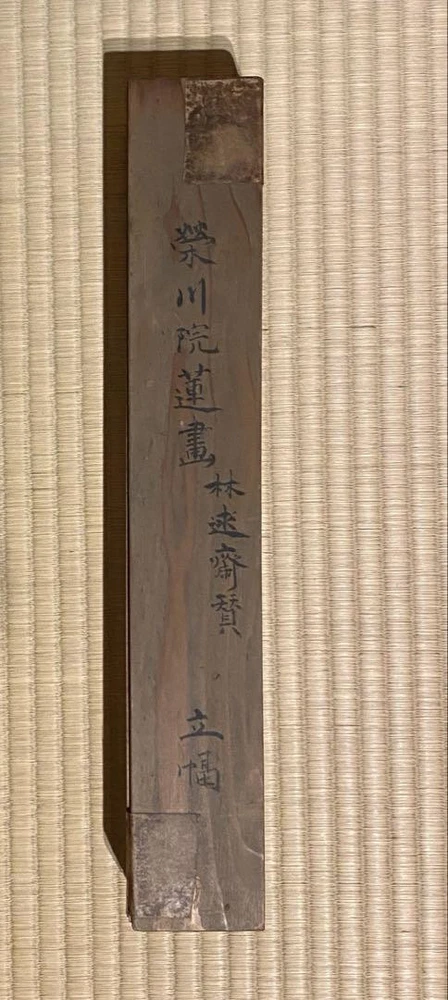 榮川院蓮畫
林述齋賛
立幅